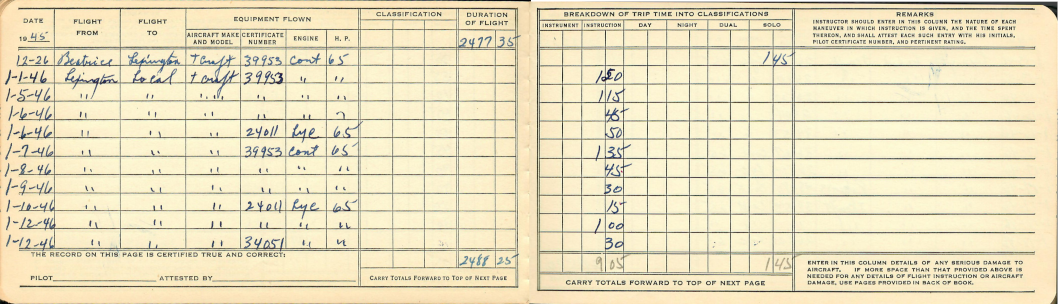 DATE FLIGHT FROM FLIGHT TO EQUIPMENT FLOWN CLASSIFICATION DURATION OF FLIGHT
1945 AIRCRAFT MAKE AND MODEL CERTIFICATE NUMBER ENGINE H. P. 2477 35
12-26 Beatrice Lexington T Craft 39953 Cont 65
1-1-46 Lexington Local T Craft 39953 " "
1-5-46 " " " " " "
1-6-46 " " " " " "
1-6-46 " " " 24011 Lyc 65
1-7-46 " " " 39953 Cont 65
1-8-46 " " " " " "
1-9-46 " " " " " "
1-10-46 " " " 24011 Lyc 65
1-12-46 " " " " " "
1-12-46 " " " 34051 " "
THE RECORD ON THIS PAGE IS CERTIFIED TRUE AND CORRECT: 2488 25
PILOT ATTESTED BY CARRY TOTALS FORWARD TO TOP OF NEXT PAGE
BREAKDOWN OF TRIP TIME INTO CLASSIFICATIONS
INSTRUMENT INSTRUCTION DAY NIGHT DUAL SOLO
1 45
1 50
1 15
45
50
1 35
45
30
15
1 00
30
9 05 1 45
CARRY TOTALS FORWARD TO TOP OF NEXT PAGE
REMARKS
INSTRUCTOR SHOULD ENTER IN THIS COLUMN THE NATURE OF EACH
MANEUVER IN WHICH INSTRUCTION IS GIVEN, AND THE TIME SPENT
THEREON, AND SHALL ATTEST EACH SUCH ENTRY WITH HIS INITIALS,
PILOT CERTIFICATE NUMBER, AND PERTINENT RATING.
ENTER IN THIS COLUMN DETAILS OF ANY SERIOUS DAMAGE TO
AIRCRAFT. IF MORE SPACE THAN THAT PROVIDED ABOVE IS
NEEDED FOR ANY DETAILS OF FLIGHT INSTRUCTION OR AIRCRAFT
DAMAGE, USE PAGES PROVIDED IN BACK OF BOOK.